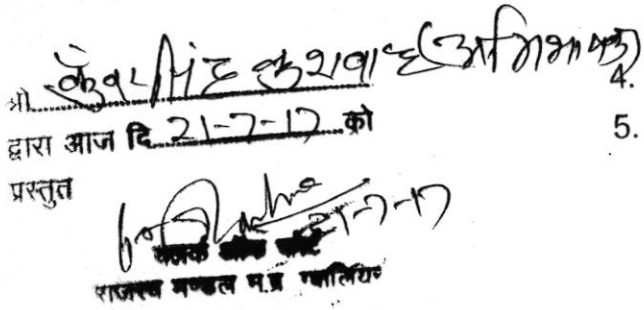 श्री कुंवर सिंह कुशवाह (अभिभाषक)
4.
द्वारा आज दि. 21-7-17 को
5.
प्रस्तुत
21-7-17
क्लर्क ऑफ कोर्ट
राजस्व मण्डल म.प्र ग्वालियर